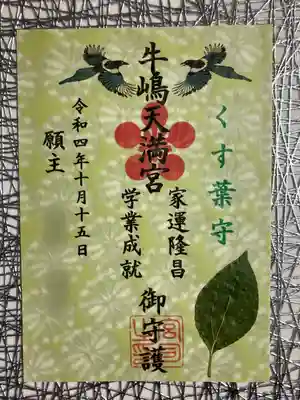 くす葉守
家運隆昌
学業成就
御守護
牛嶋天満宮
令和四年十月十五日
願主